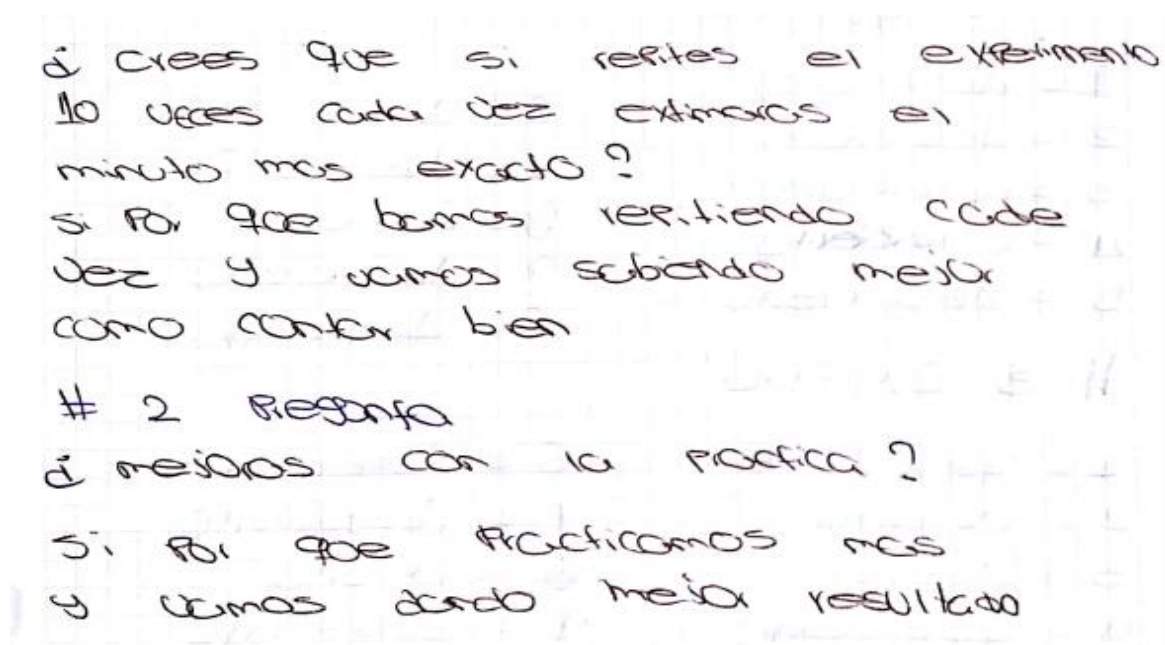 ¿ crees que si repites el experimento
10 veces cada vez extimaras el
minuto mas exacto?
si por que bamos repitiendo cada
vez y vamos sabiendo mejor
como contar bien
# 2 Pregonta
¿ mejoras con la practica?
si por que Practicamos mas
y vamos dando mejor resultado